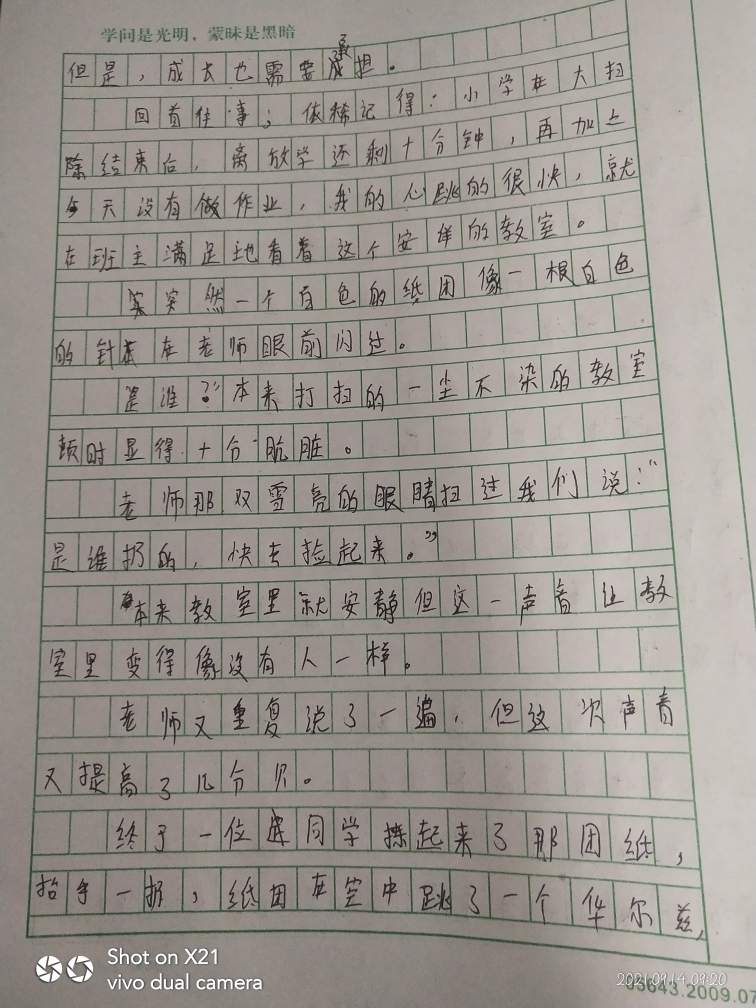 学问是光明，蒙昧是黑暗
但是，成长也需要承担。
回首往事；依稀记得：小学在大扫
除结束后，离放学还剩十分钟，再加上
今天没有做作业，我的心跳的很快，就
在班主满足地看着这个安详的教室。
突然一个白色的纸团像一根白色
的针在老师眼前闪过。
是谁？！本来打扫的一尘不染的教室
顿时显得十分肮脏。
老师那双雪亮的眼睛扫过我们说："
是谁扔的，快去捡起来。"
本来教室里就安静但这一声音让教
室里变得像没有人一样。
老师又重复说了一遍，但这次声音
又提高了几分贝。
终于一位同学拣起来了那团纸，
抬手一扔，纸团在空中跳了一个华尔兹，
Shot on X21
vivo dual camera
2021.09.14 09:20
03643.2009.07